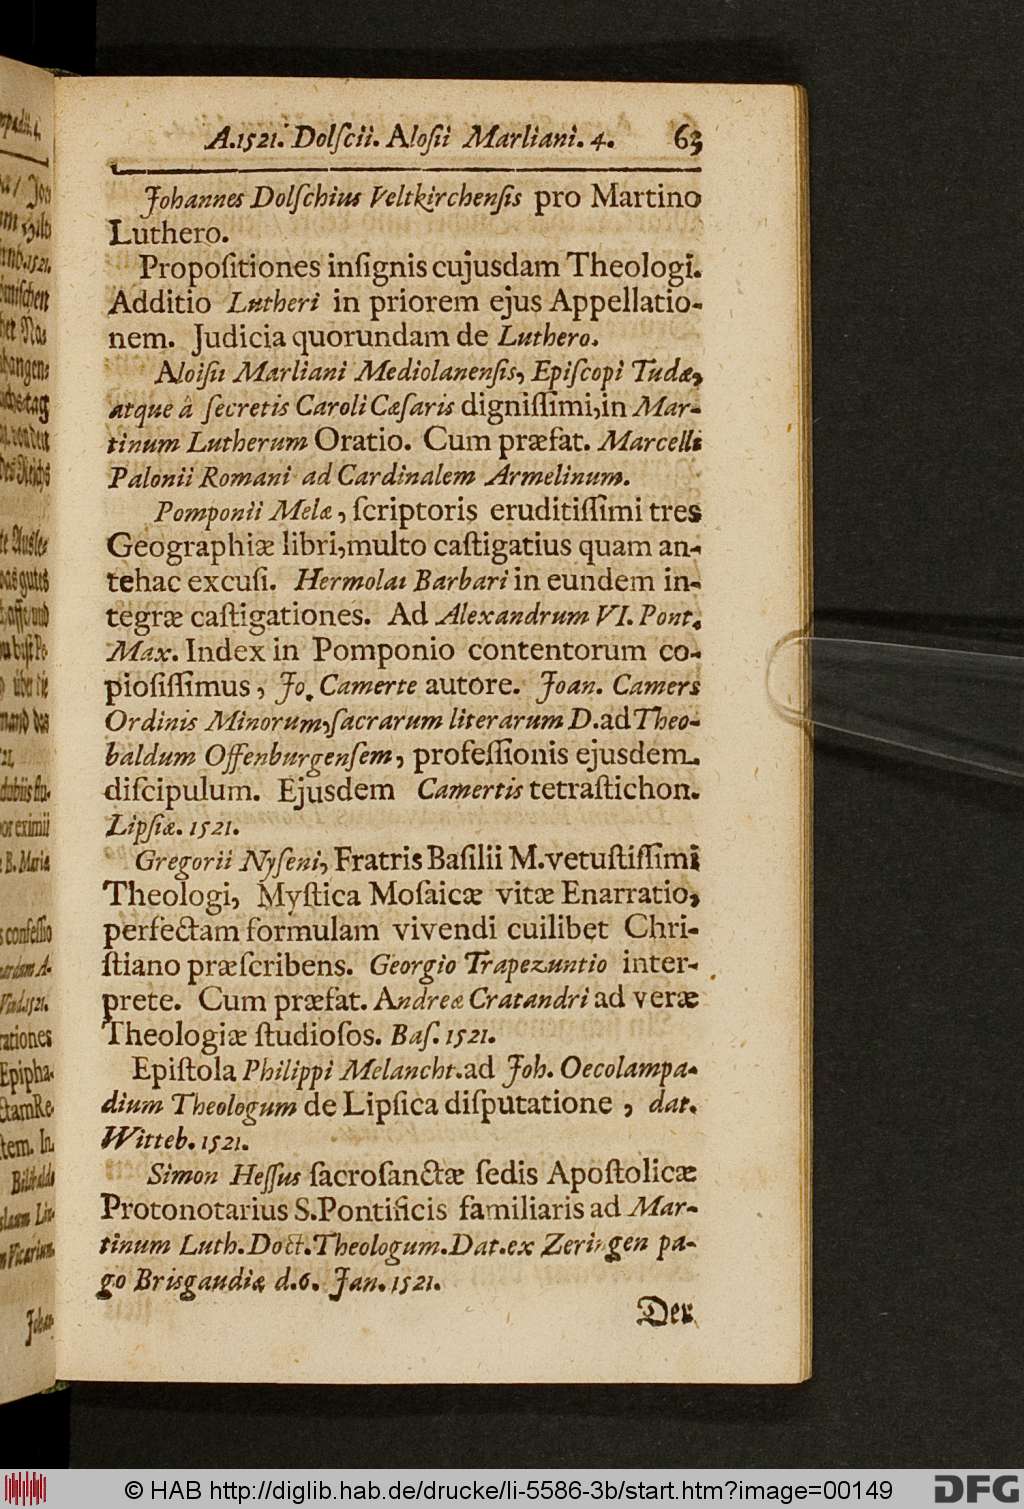 A.1521. Dolſcii. Aloſii Marliani. 4. 63
Johannes Dolſchius Veltkirchenſis pro Martino
Luthero.
Propoſitiones inſignis cujusdam Theologi.
Additio Lutheri in priorem ejus Appellatio-
nem. Judicia quorundam de Luthero.
Aloiſii Marliani Mediolanenſis, Epiſcopi Tudæ,
atque â ſecretis Caroli Cæſaris digniſſimi, in Mar-
tinum Lutherum Oratio. Cum præfat. Marcelli
Palonii Romani ad Cardinalem Armelinum.
Pomponii Melæ, ſcriptoris eruditiſſimi tres
Geographiæ libri, multo caſtigatius quam an-
tehac excuſi. Hermolai Barbari in eundem in-
tegræ caſtigationes. Ad Alexandrum VI. Pont.
Max. Index in Pomponio contentorum co-
pioſiſſimus, Jo. Camerte autore. Joan. Camers
Ordinis Minorum, ſacrarum literarum D. ad Theo-
baldum Offenburgenſem, profeſſionis ejusdem
diſcipulum. Ejusdem Camertis tetraſtichon.
Lipſiæ. 1521.
Gregorii Nyſeni, Fratris Baſilii M. vetuſtiſſimi
Theologi, Myſtica Moſaicæ vitæ Enarratio,
perfectam formulam vivendi cuilibet Chri-
ſtiano præſcribens. Georgio Trapezuntio inter-
prete. Cum præfat. Andreæ Cratandri ad veræ
Theologiæ ſtudioſos. Baſ. 1521.
Epiſtola Philippi Melancht. ad Joh. Oecolampa-
dium Theologum de Lipſica diſputatione, dat.
Witteb. 1521.
Simon Heſſus ſacroſanctæ ſedis Apoſtolicæ
Protonotarius S. Pontificis familiaris ad Mar-
tinum Luth. Doct. Theologum. Dat. ex Zeringen pa-
go Brisgaudiæ d. 6. Jan. 1521.
Der
© HAB http://diglib.hab.de/drucke/li-5586-3b/start.htm?image=00149
DFG